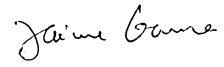 Jaime Gama